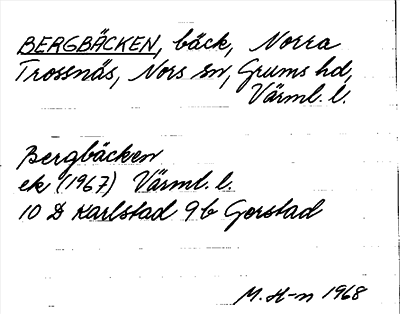 BERGBÄCKEN, bäck, Norra
Trossnäs, Nors sn, Grums hd,
Värml. l.
Bergbäcken
ek (1967) Värml. l.
10 D Karlstad 9b Gerstad
M. H-n 1968